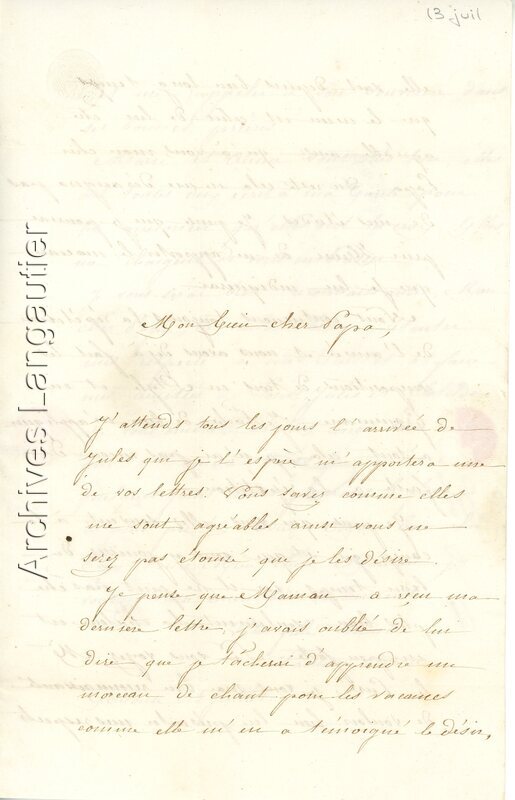 13 juil
Mon bien cher Papa,
J'attends tous les jours l'arrivée de
Jules que je l'espère m'apportera une
de vos lettres. Vous savez comme elles
me sont agréables ainsi vous ne
serez pas étonné que je les désire.
Je pense que Maman a reçu ma
dernière lettre, j'avais oublié de lui
dire que je tâcherai d'apprendre un
morceau de chant pour les vacances
comme elle m'en a témoigné le désir,
Archives Langautier